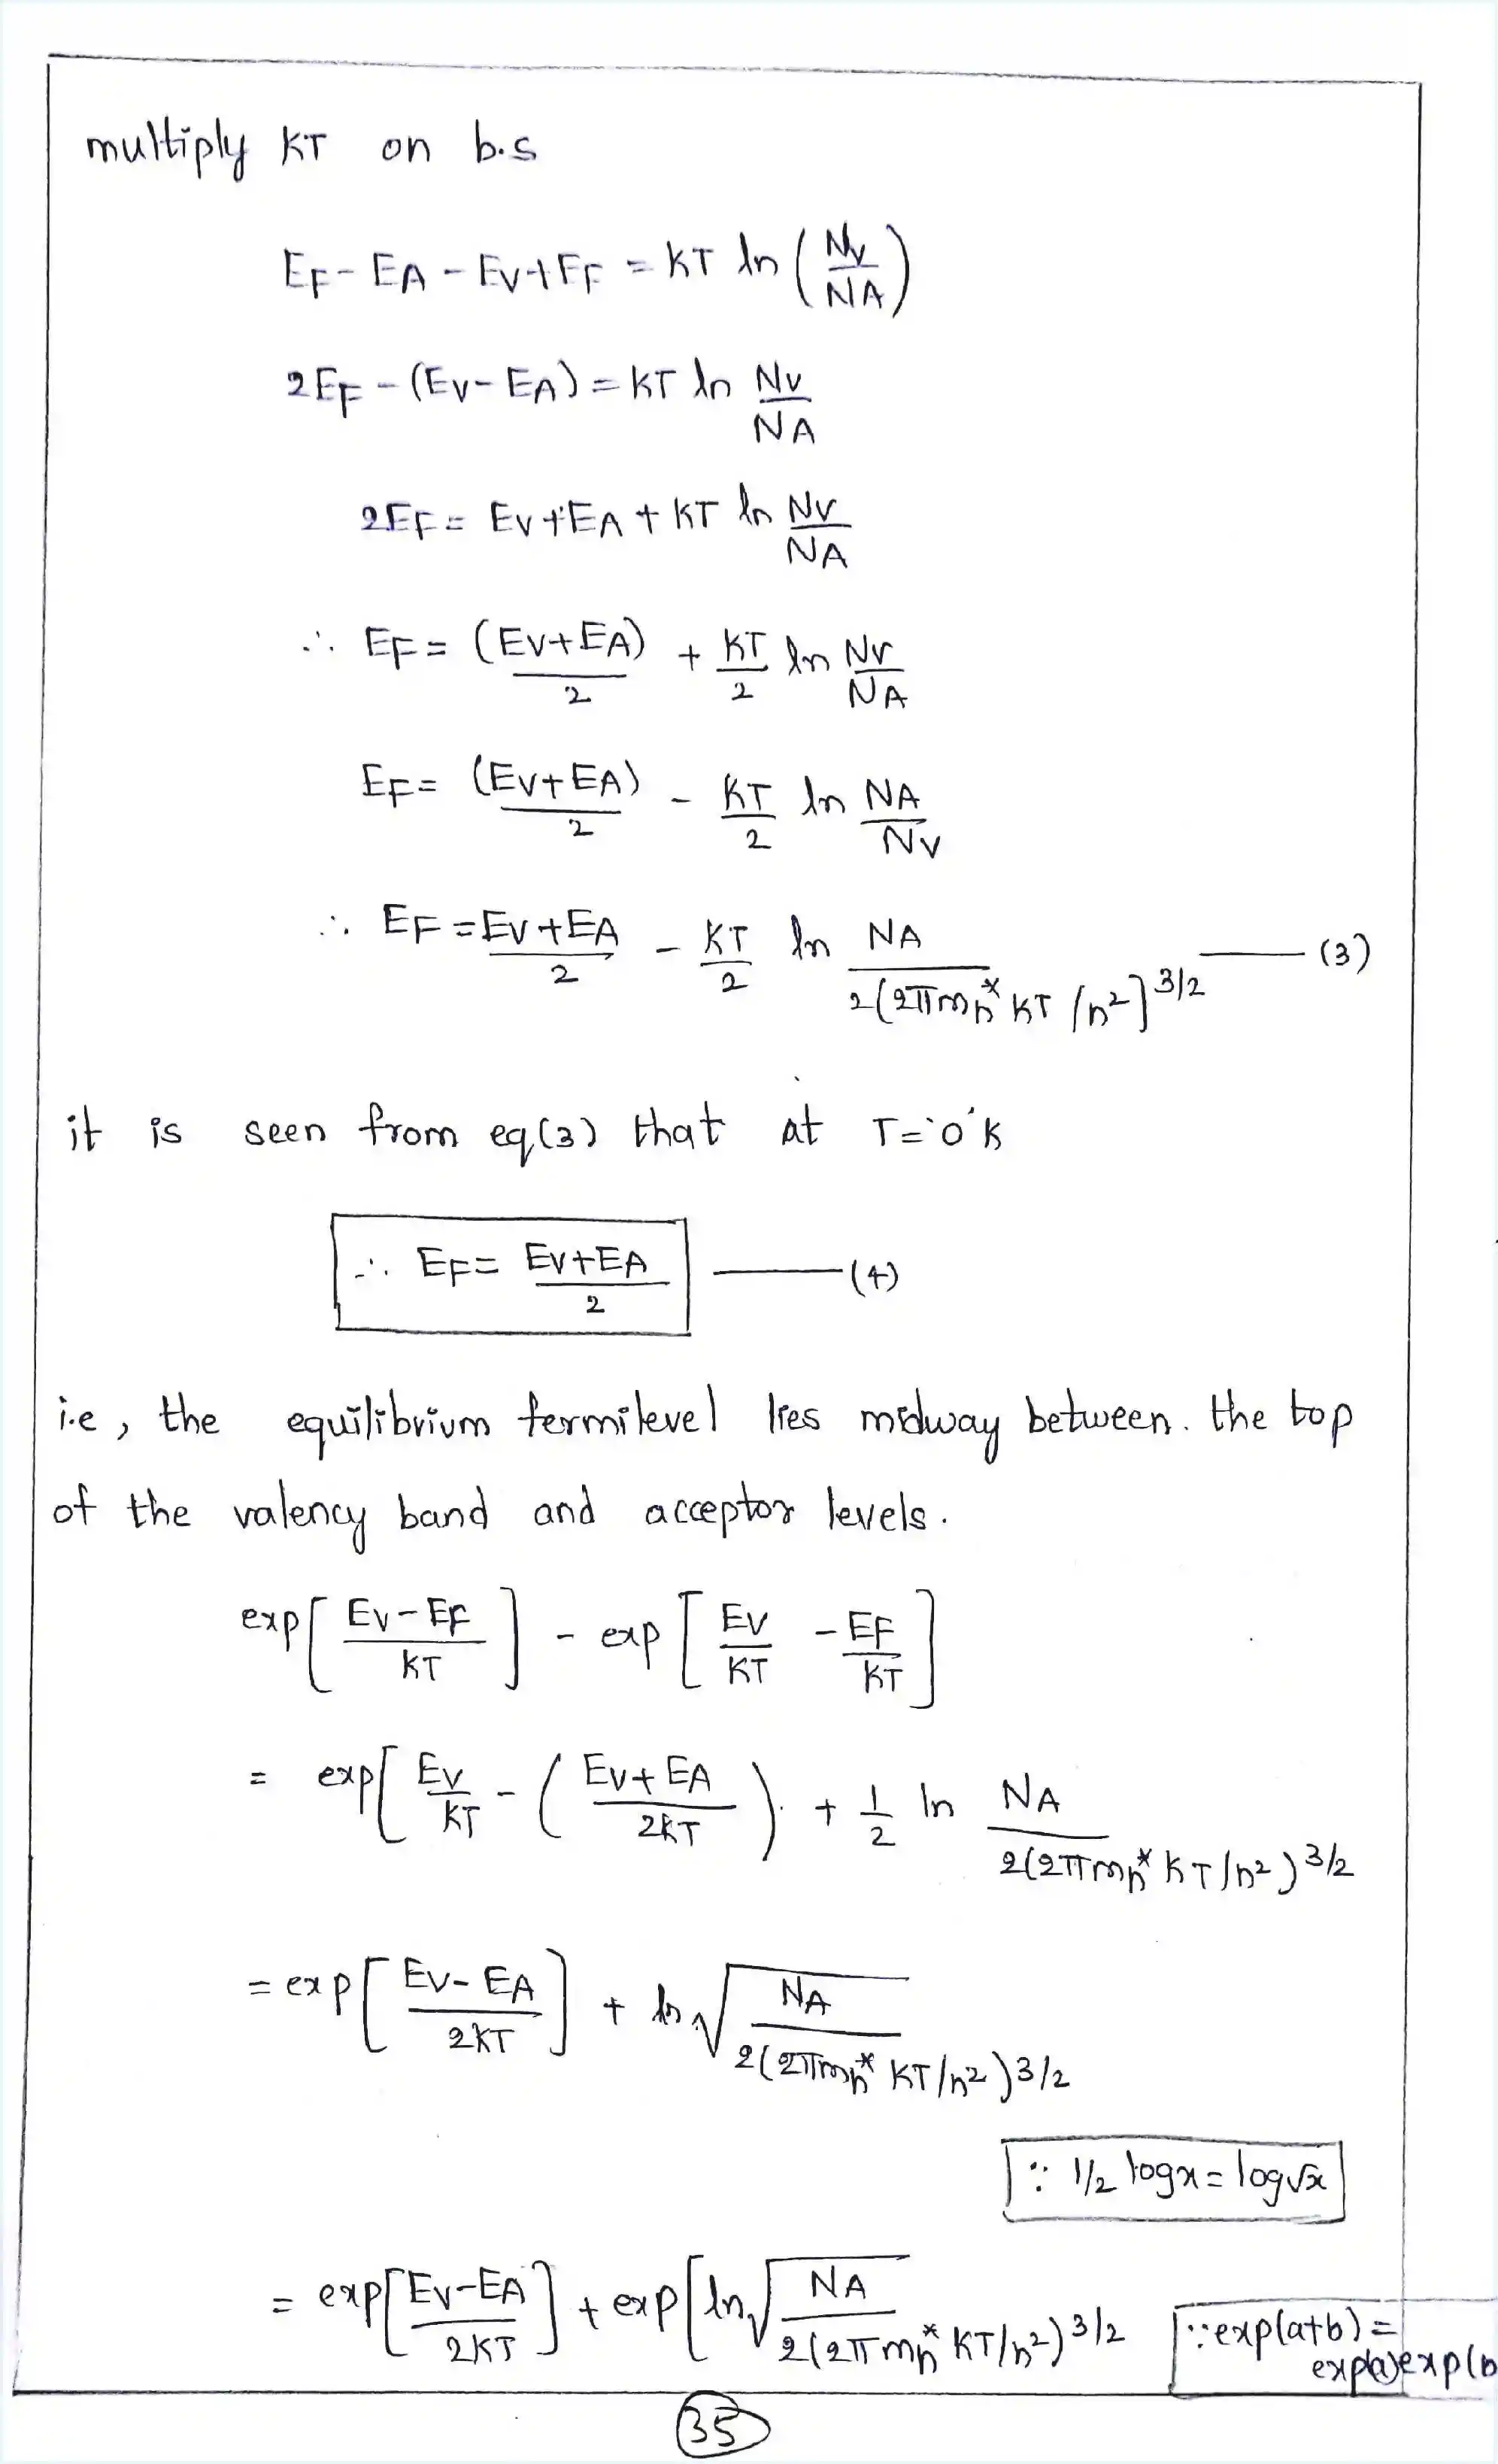 multiply KT on b.s
EF - EA - EV + EF = KT ln (NV/NA)
2EF - (EV - EA) = KT ln NV/NA
2EF = EV + EA + KT ln NV/NA
∴ EF = (EV+EA)/2 + KT/2 ln NV/NA
EF = (EV+EA)/2 - KT/2 ln NA/NV
∴ EF = EV+EA/2 - KT/2 ln NA/2(2πmh* KT/h²]3/2 —— (3)
it is seen from eq(3) that at T=0°K
∴ EF = EV+EA/2 —— (4)
i.e, the equilibrium fermilevel lies midway between. the top
of the valency band and acceptor levels.
exp[EV-EF/KT] - exp[EV/KT - EF/KT]
= exp[EV/KT - (EV+EA/2KT) + 1/2 ln NA/2(2πmh* KT/h²)3/2
= exp[EV-EA/2KT] + ln √NA/2(2πmh* KT/h²)3/2
∵ 1/2 logx = log√x
= exp[EV-EA/2KT] + exp[ln √NA/2(2πmh* KT/h²)3/2
∵ exp(a+b) =
exp(a)exp(b
35